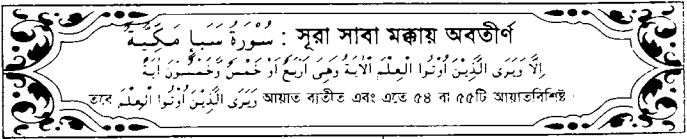 سُوْرَةُ سَبَإٍ مَكِّيَّةٌ : সূরা সাবা মক্কায় অবতীর্ণ
اِلَّا وَيَرَى الَّذِيْنَ اُوْتُوا الْعِلْمَ الْاٰيَةَ وَهِىَ اَرْبَعٌ اَوْ خَمْسٌ وَّخَمْسُوْنَ اٰيَةً
তবে وَيَرَى الَّذِيْنَ اُوْتُوا الْعِلْمَ আয়াত ব্যতীত এবং এতে ৫৪ বা ৫৫টি আয়াতবিশিষ্ট